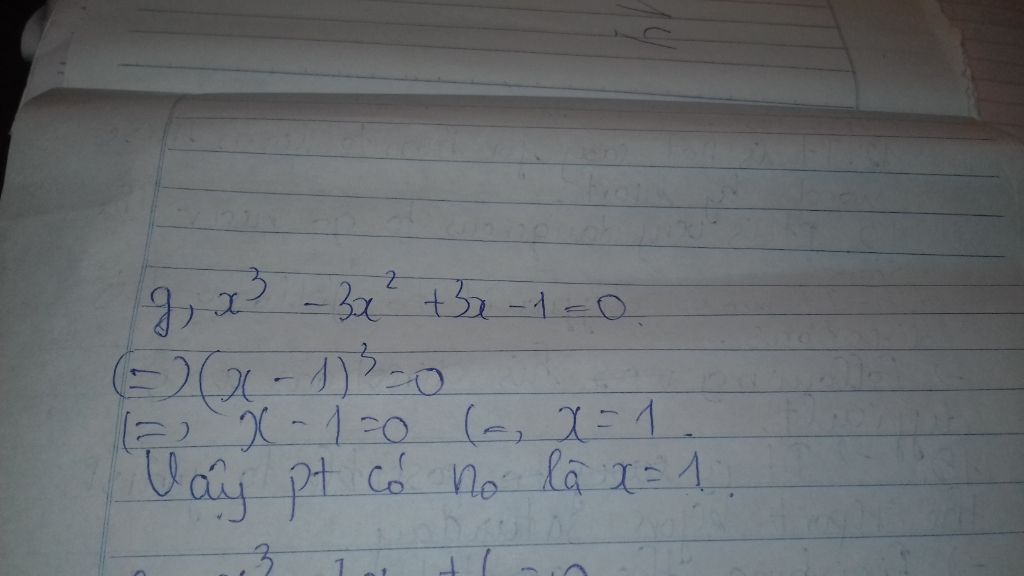 g, x³ - 3x² + 3x - 1 = 0.
(=) (x - 1)³ = 0
(=) x - 1 = 0 (=) x = 1.
Vậy pt có no là x = 1.